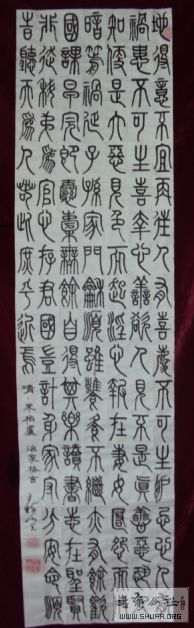 地得意不宜再往人有喜慶不可生妒忌心人有
禍患不可生喜幸心善欲人見不是真善惡恐人
知便是大惡見色而起淫心報在妻女匿怨而用
暗箭禍延子孫家門龢順雖饔飧不繼亦有餘歡
國課早完即囊橐無餘自得其樂讀書志在聖賢
非徒科第為官心存君國豈計身家守分安命順
時聽天為人若此庶乎近焉 清 朱柏廬 治家格言